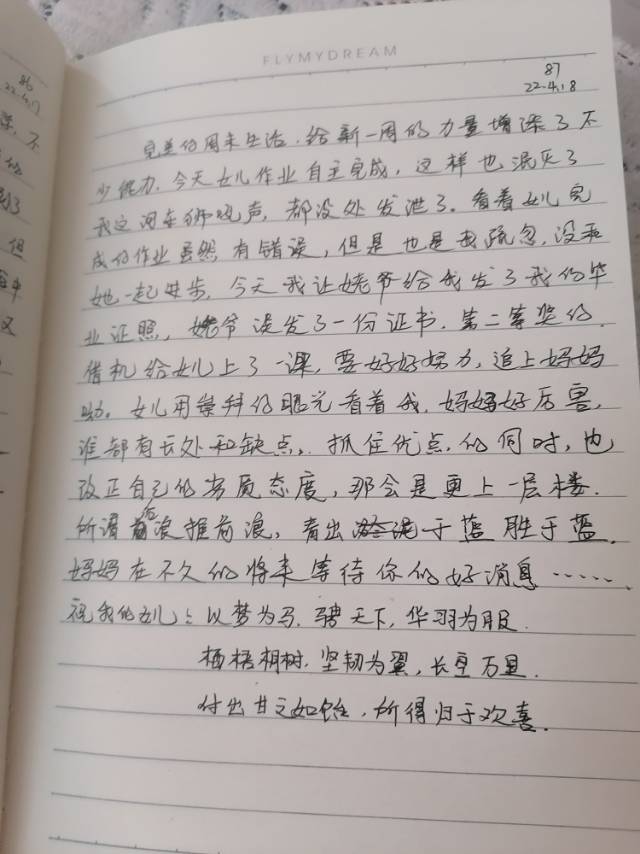 FLYMYDREAM
86
22.4.17
87
22.4.18
完美的周末生活,给新一周的力量增添了不
少能力,今天女儿作业自主完成,这样也泯灭了
我这河东狮吼声,都没处发泄了。看着女儿完
成的作业虽然有错误,但是也是我疏忽,没和
她一起进步,今天我让姥爷给我发了我的毕
业证照,姥爷误发了一份证书,第二等奖的,
借机给女儿上了一课,要好好努力,追上妈妈
呦。女儿用崇拜的眼光看着我,妈妈好厉害,
谁都有长处和缺点,抓住优点,的同时,也
改正自己的劣质态度,那会是更上一层楼.
所谓后浪推前浪,青出于蓝胜于蓝.
妈妈在不久的将来等待你的好消息……
祝我的女儿:以梦为马,骋天下,华羽为服.
栖梧桐树,坚韧为翼,长空万里.
付出甘之如饴,所得归于欢喜.